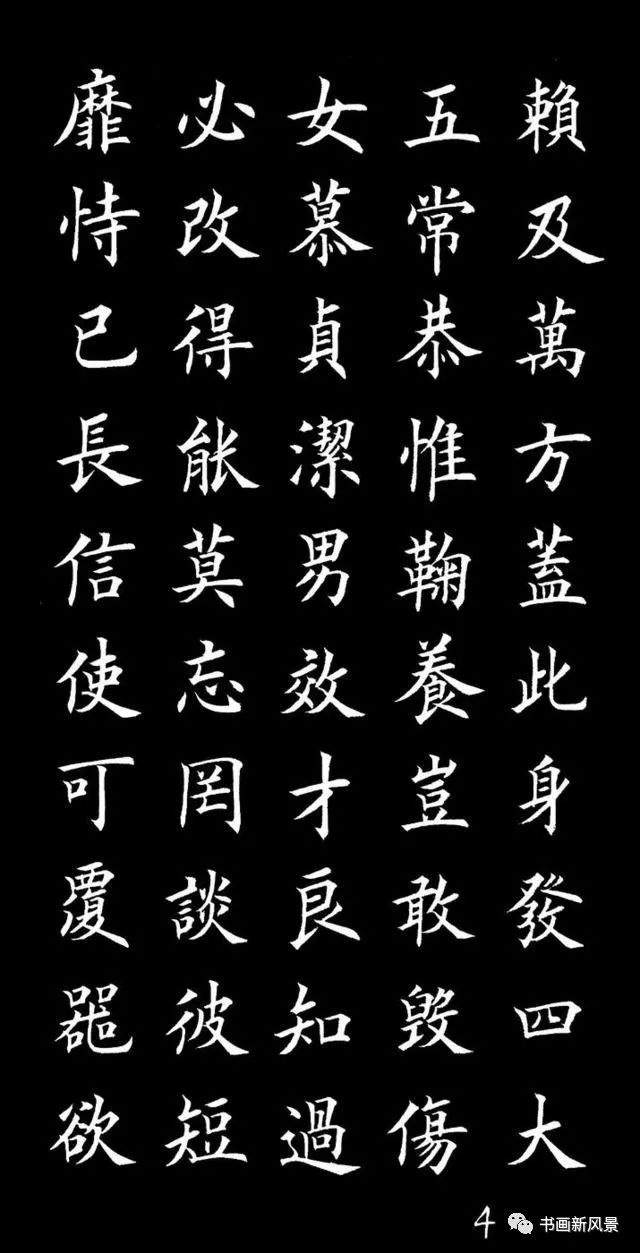 賴及萬方蓋此身發四大
五常恭惟鞠養豈敢毀傷
女慕貞潔男效才良知過
必改得能莫忘罔談彼短
靡恃已長信使可覆器欲
4
书画新风景